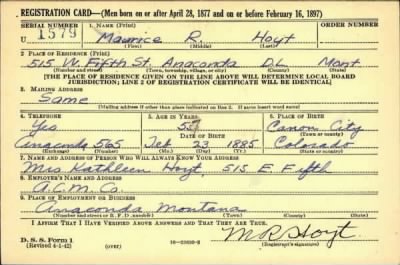 REGISTRATION CARD—(Men born on or after April 28, 1877 and on or before February 16, 1897)
SERIAL NUMBER 1. NAME (Print) ORDER NUMBER
U 1579 Maurice R. Hoyt
(First) (Middle) (Last)
2. PLACE OF RESIDENCE (Print)
515 W. Fifth St. Anaconda D.L. Mont
(Number and street) (Town, township, village, or city) (County) (State)
[THE PLACE OF RESIDENCE GIVEN ON THE LINE ABOVE WILL DETERMINE LOCAL BOARD
JURISDICTION; LINE 2 OF REGISTRATION CERTIFICATE WILL BE IDENTICAL]
3. MAILING ADDRESS
Same
[Mailing address if other than place indicated on line 2. If same insert word same]
4. TELEPHONE 5. AGE IN YEARS 6. PLACE OF BIRTH
Yes Canon City
DATE OF BIRTH
Anaconda 565 Feb 23 1885 Colorado
(Exchange) (Number) (Mo.) (Day) (Yr.) (State or country)
7. NAME AND ADDRESS OF PERSON WHO WILL ALWAYS KNOW YOUR ADDRESS
Mrs Kathleen Hoyt 515 E. Fifth
8. EMPLOYER'S NAME AND ADDRESS
A.C.M. Co.
9. PLACE OF EMPLOYMENT OR BUSINESS
Anaconda Montana
(Number and street or R. F. D. number) (Town) (County) (State)
I AFFIRM THAT I HAVE VERIFIED ABOVE ANSWERS AND THAT THEY ARE TRUE.
D. S. S. Form 1
(Revised 4-1-42) (over) M R Hoyt
(Registrant's signature)